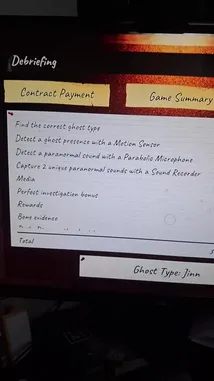 Debriefing
Contract Payment
Game Summary
Find the correct ghost type
Detect a ghost presence with a Motion Sensor
Detect a paranormal sound with a Parabolic Microphone
Capture 2 unique paranormal sounds with a Sound Recorder
Media
Perfect investigation bonus
Rewards
Bone evidence
Total
Ghost Type: Jinn